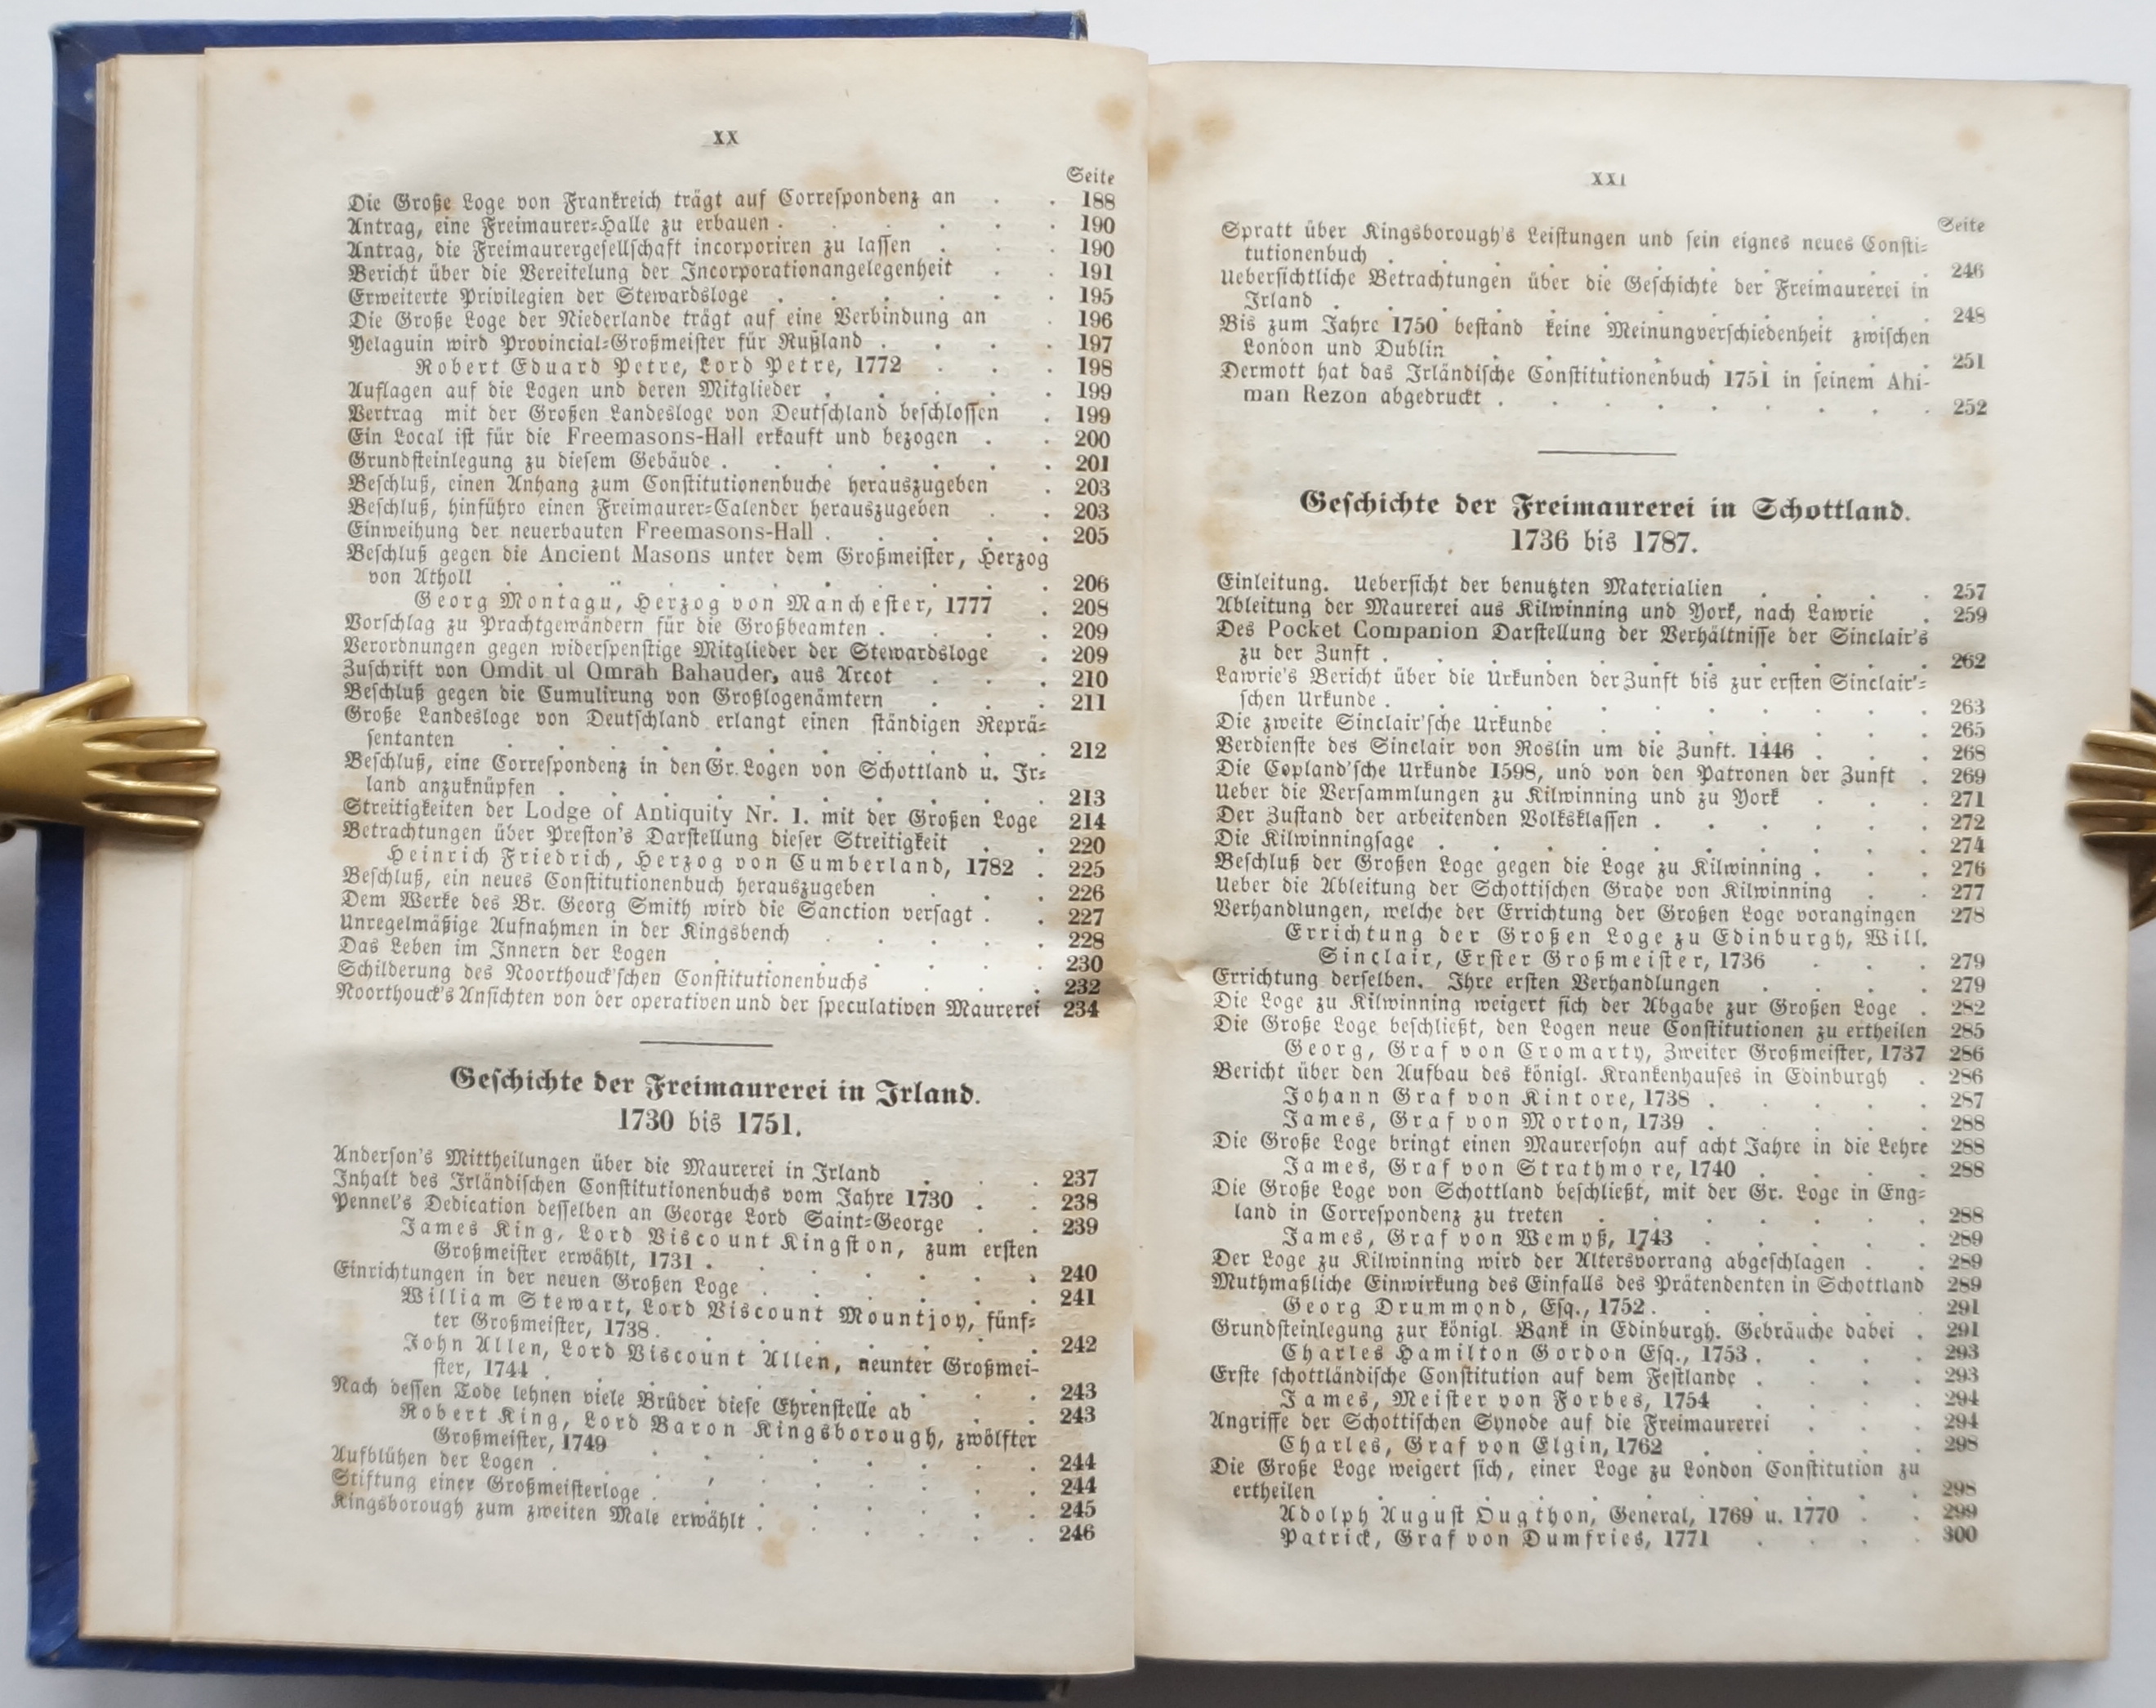 XX
Seite
Die Große Loge von Frankreich trägt auf Correspondenz an . . 188
Antrag, eine Freimaurer-Halle zu erbauen . . . . . . 190
Antrag, die Freimaurergesellschaft incorporiren zu lassen . . . 190
Bericht über die Vereitelung der Incorporationangelegenheit . . 191
Erweiterte Privilegien der Stewardsloge . . . . . . 195
Die Große Loge der Niederlande trägt auf eine Verbindung an . 196
Yelaguin wird Provincial-Großmeister für Rußland . . . . 197
Robert Eduard Petre, Lord Petre, 1772 . . . 198
Auflagen auf die Logen und deren Mitglieder . . . . . 199
Vertrag mit der Großen Landesloge von Deutschland beschlossen . 199
Ein Local ist für die Freemasons-Hall erkauft und bezogen . . 200
Grundsteinlegung zu diesem Gebäude . . . . . . . 201
Beschluß, einen Anhang zum Constitutionenbuche herauszugeben . 203
Beschluß, hinführo einen Freimaurer-Calender herauszugeben . . 203
Einweihung der neuerbauten Freemasons-Hall . . . . . 205
Beschluß gegen die Ancient Masons unter dem Großmeister, Herzog
von Atholl . . . . . . . . . . 206
Georg Montagu, Herzog von Manchester, 1777 . 208
Vorschlag zu Prachtgewändern für die Großbeamten . . . . 209
Verordnungen gegen widerspenstige Mitglieder der Stewardsloge . 209
Zuschrift von Omdit ul Omrah Bahauder, aus Arcot . . . 210
Beschluß gegen die Cumulirung von Großlogenämtern . . . 211
Große Landesloge von Deutschland erlangt einen ständigen Reprä-
sentanten . . . . . . . . . . . 212
Beschluß, eine Correspondenz in den Gr. Logen von Schottland u. Ir-
land anzuknüpfen . . . . . . . . . . 213
Streitigkeiten der Lodge of Antiquity Nr. 1. mit der Großen Loge 214
Betrachtungen über Preston's Darstellung dieser Streitigkeit . . 220
Heinrich Friedrich, Herzog von Cumberland, 1782 . 225
Beschluß, ein neues Constitutionenbuch herauszugeben . . . 226
Dem Werke des Br. Georg Smith wird die Sanction versagt . . 227
Unregelmäßige Aufnahmen in der Kingsbench . . . . . 228
Das Leben im Innern der Logen . . . . . . . 230
Schilderung des Noorthouck'schen Constitutionenbuchs . . . 232
Noorthouck's Ansichten von der operativen und der speculativen Maurerei 234
Geschichte der Freimaurerei in Irland.
1730 bis 1751.
Anderson's Mittheilungen über die Maurerei in Irland . . . 237
Inhalt des Irländischen Constitutionenbuchs vom Jahre 1730 . . 238
Pennel's Dedication desselben an George Lord Saint-George . . 239
James King, Lord Viscount Kingston, zum ersten
Großmeister erwählt, 1731 . . . . . . . 240
Einrichtungen in der neuen Großen Loge . . . . . . 241
William Stewart, Lord Viscount Mountjoy, fünf-
ter Großmeister, 1738 . . . . . . . . 242
John Allen, Lord Viscount Allen, neunter Großmei-
ster, 1744 . . . . . . . . . . 243
Nach dessen Tode lehnen viele Brüder diese Ehrenstelle ab . . 243
Robert King, Lord Baron Kingsborough, zwölfter
Großmeister, 1749 . . . . . . . . 244
Aufblühen der Logen . . . . . . . . . 244
Stiftung einer Großmeisterloge . . . . . . . . 245
Kingsborough zum zweiten Male erwählt . . . . . . 246
XXI
Seite
Spratt über Kingsborough's Leistungen und sein eignes neues Consti-
tutionenbuch . . . . . . . . . . . 246
Uebersichtliche Betrachtungen über die Geschichte der Freimaurerei in
Irland . . . . . . . . . . . . 248
Bis zum Jahre 1750 bestand keine Meinungverschiedenheit zwischen
London und Dublin . . . . . . . . . 251
Dermott hat das Irländische Constitutionenbuch 1751 in seinem Ahi-
man Rezon abgedruckt . . . . . . . . . 252
Geschichte der Freimaurerei in Schottland.
1736 bis 1787.
Einleitung. Uebersicht der benutzten Materialien . . . . 257
Ableitung der Maurerei aus Kilwinning und York, nach Lawrie . 259
Des Pocket Companion Darstellung der Verhältnisse der Sinclair's
zu der Zunft . . . . . . . . . . . 262
Lawrie's Bericht über die Urkunden der Zunft bis zur ersten Sinclair'-
schen Urkunde . . . . . . . . . . . 263
Die zweite Sinclair'sche Urkunde . . . . . . . 265
Verdienste des Sinclair von Roslin um die Zunft. 1446 . . . 268
Die Copland'sche Urkunde 1598, und von den Patronen der Zunft . 269
Ueber die Versammlungen zu Kilwinning und zu York . . . 271
Der Zustand der arbeitenden Volksklassen . . . . . . 272
Die Kilwinningsage . . . . . . . . . . 274
Beschluß der Großen Loge gegen die Loge zu Kilwinning . . . 276
Ueber die Ableitung der Schottischen Grade von Kilwinning . . 277
Verhandlungen, welche der Errichtung der Großen Loge vorangingen 278
Errichtung der Großen Loge zu Edinburgh, Will.
Sinclair, Erster Großmeister, 1736 . . . 279
Errichtung derselben. Ihre ersten Verhandlungen . . . . 279
Die Loge zu Kilwinning weigert sich der Abgabe zur Großen Loge . 282
Die Große Loge beschließt, den Logen neue Constitutionen zu ertheilen 285
Georg, Graf von Cromarty, Zweiter Großmeister, 1737 286
Bericht über den Aufbau des königl. Krankenhauses in Edinburgh . 286
Johann Graf von Kintore, 1738 . . . . . 287
James, Graf von Morton, 1739 . . . . . 288
Die Große Loge bringt einen Maurersohn auf acht Jahre in die Lehre 288
James, Graf von Strathmore, 1740 . . . . 288
Die Große Loge von Schottland beschließt, mit der Gr. Loge in Eng-
land in Correspondenz zu treten . . . . . . . 288
James, Graf von Wemyß, 1743 . . . . . 289
Der Loge zu Kilwinning wird der Altersvorrang abgeschlagen . . 289
Muthmaßliche Einwirkung des Einfalls des Prätendenten in Schottland 289
Georg Drummond, Esq., 1752 . . . . . . 291
Grundsteinlegung zur königl. Bank in Edinburgh. Gebräuche dabei . 291
Charles Hamilton Gordon Esq., 1753 . . . . 293
Erste schottländische Constitution auf dem Festlande . . . . 293
James, Meister von Forbes, 1754 . . . . 294
Angriffe der Schottischen Synode auf die Freimaurerei . . . 294
Charles, Graf von Elgin, 1762 . . . . . 298
Die Große Loge weigert sich, einer Loge zu London Constitution zu
ertheilen . . . . . . . . . . . 298
Adolph August Ougthon, General, 1769 u. 1770 . . 299
Patrick, Graf von Dumfries, 1771 . . . . 300